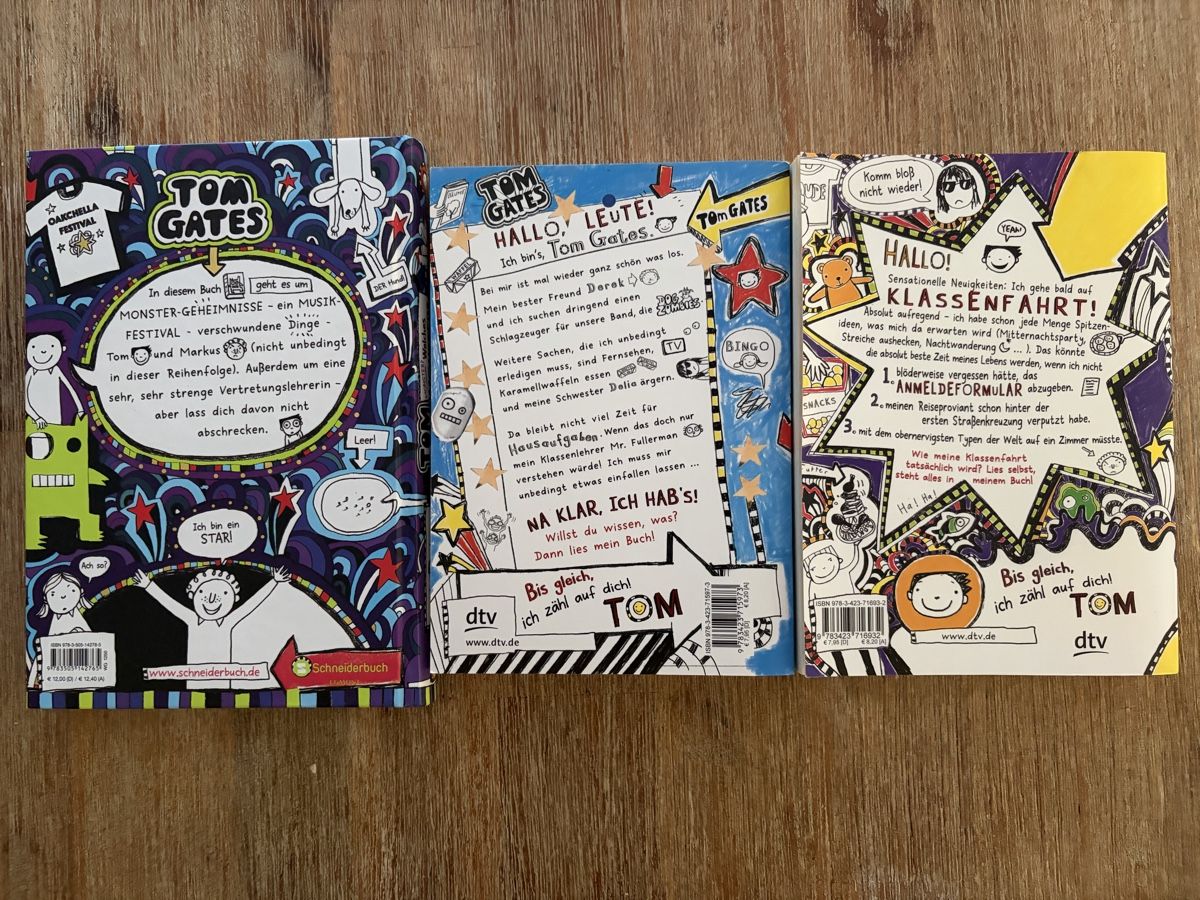 OAKCHELLA
FESTIVAL
TOM
GATES
DER Hund!
In diesem Buch geht es um
MONSTER-GEHEIMNISSE – ein MUSIK-
FESTIVAL – verschwundene Dinge –
Tom und Markus (nicht unbedingt
in dieser Reihenfolge). Außerdem um eine
sehr, sehr strenge Vertretungslehrerin –
aber lass dich davon nicht
abschrecken.
Leer!
Ich bin ein
STAR!
Ach so?
ISBN 978-3-505-14278-5
9 783505 142765
€ 12,00 (D) / € 12,40 (A)
www.schneiderbuch.de
Schneiderbuch
TOM
GATES
TOM GATES
HALLO, LEUTE!
Ich bin's, Tom Gates.
Bei mir ist mal wieder ganz schön was los.
Mein bester Freund Derek
und ich suchen dringend einen
Schlagzeuger für unsere Band, die DOG ZOMBIES
Weitere Sachen, die ich unbedingt
erledigen muss, sind Fernsehen, TV
Karamellwaffeln essen
und meine Schwester Delia ärgern.
BINGO
Da bleibt nicht viel Zeit für
Hausaufgaben. Wenn das doch nur
mein Klassenlehrer Mr. Fullerman
verstehen würde! Ich muss mir
unbedingt etwas einfallen lassen ...
NA KLAR, ICH HAB'S!
Willst du wissen, was?
Dann lies mein Buch!
Bis gleich,
ich zähl auf dich!
TOM
dtv
www.dtv.de
ISBN 978-3-423-71597-3
9 783423 715973
€ 7,95 [D] € 8,20 [A]
Komm bloß
nicht wieder!
YEAH!
HALLO!
Sensationelle Neuigkeiten: Ich gehe bald auf
KLASSENFAHRT!
Absolut aufregend – ich habe schon jede Menge Spitzen-
ideen, was mich da erwarten wird (Mitternachtsparty,
Streiche aushecken, Nachtwanderung ...). Das könnte
die absolut beste Zeit meines Lebens werden, wenn ich nicht
1. blöderweise vergessen hätte, das
ANMELDEFORMULAR abzugeben.
2. meinen Reiseproviant schon hinter der
ersten Straßenkreuzung verputzt habe.
3. mit dem obernervigsten Typen der Welt auf ein Zimmer müsste.
Wie meine Klassenfahrt
tatsächlich wird? Lies selbst,
steht alles in meinem Buch!
SNACKS
Futter
Ha! Ha!
Bis gleich,
ich zähl auf dich!
TOM
ISBN 978-3-423-71693-2
9 783423 716932
€ 7,95 [D] € 8,20 [A]
www.dtv.de
dtv